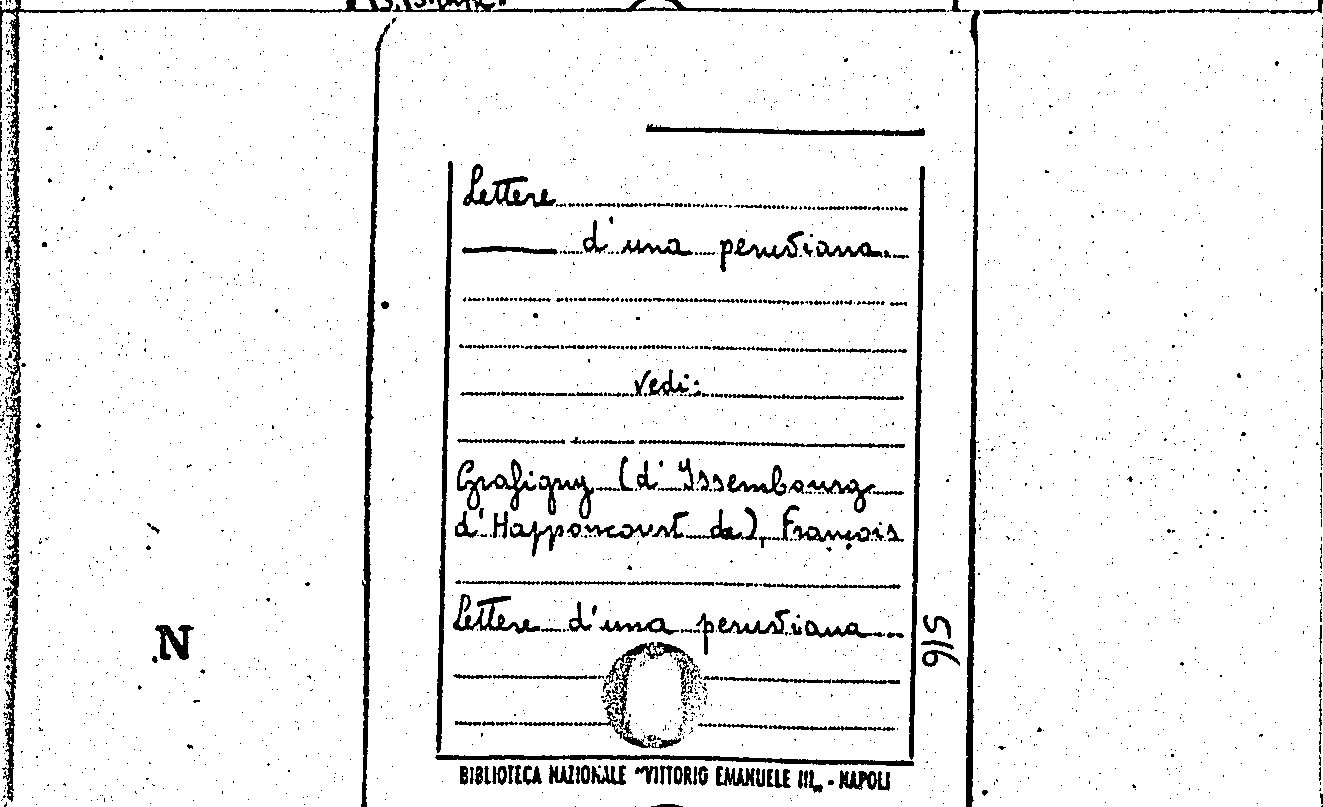 Lettere
——— d'una peruviana.
vedi:
Grafigny (d'Issembourg
d'Happoncourt de), François
Lettere d'una peruviana...
N
5/6
BIBLIOTECA NAZIONALE "VITTORIO EMANUELE III„ - NAPOLI